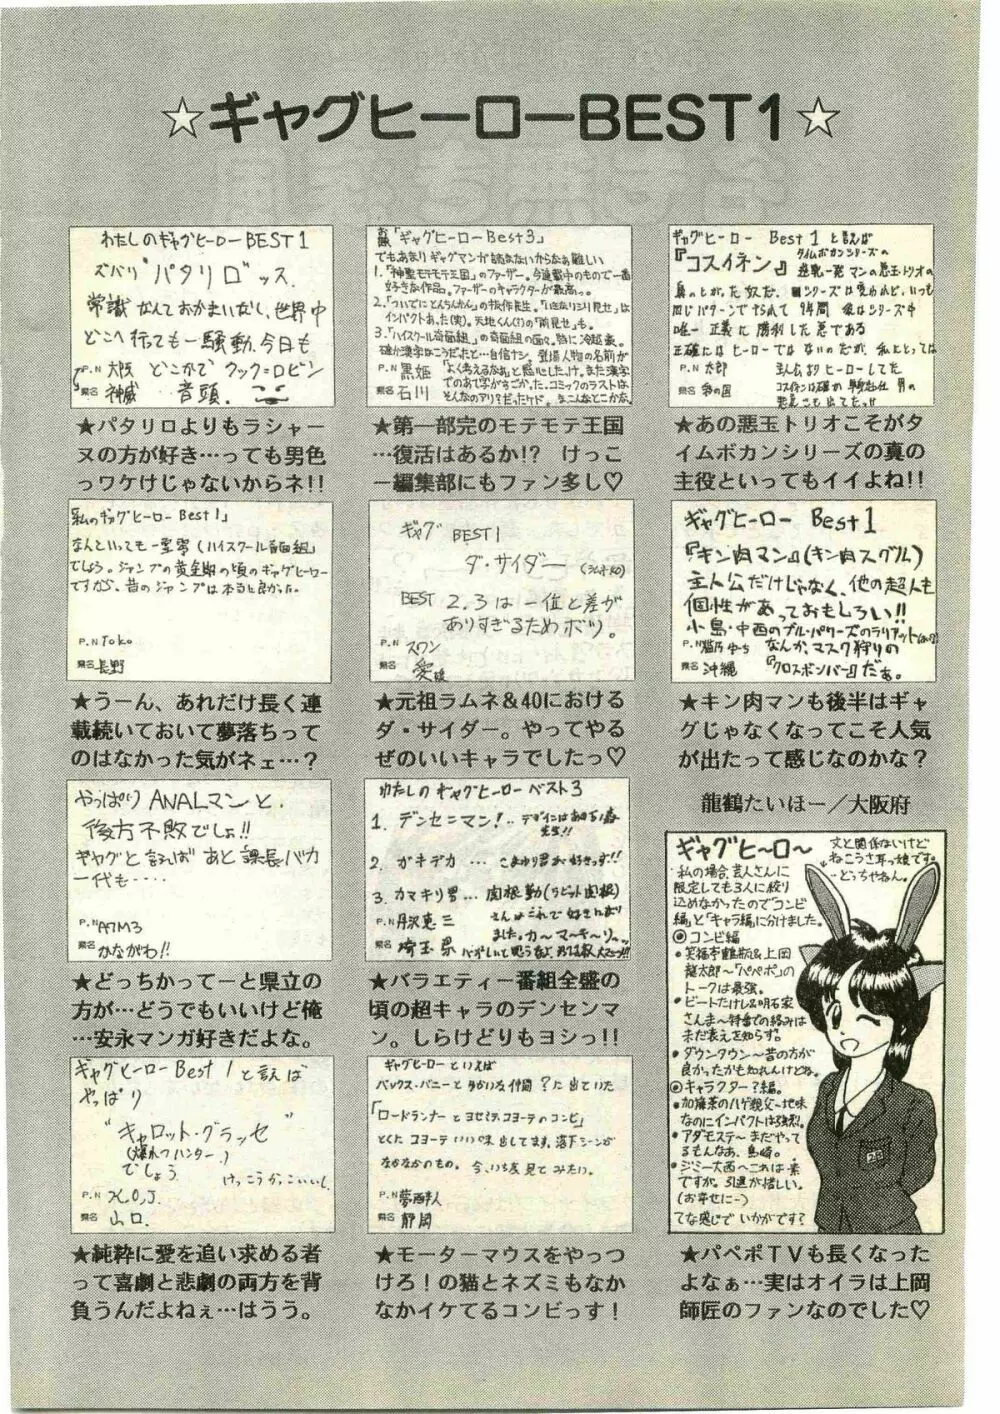 ☆ギャグヒーローBEST1☆
わたしのギャグヒーローBEST1
ズバリ"パタリロ"ッス.
常識なんておかまいなし、世界中
どこへ行っても一騒動、今日も
どこかで クック=ロビン
音頭.
P.N 大阪
県名 神威
★パタリロよりもラシャー
ヌの方が好き…っても男色
っワケけじゃないからネ!!
お題「ギャグヒーローBest3」
でもあまりギャグマンガ読まないからなぁ難しい
1.「神聖モテモテ王国」のファーザー。今連載中のもので一番
好きな作品。ファーザーのキャラクターが最高っ。
2.「ついでにとんちんかん」の抜作先生。「いきなり尻見せ」は
インパクトあった(笑)。天地くん(?)の「前見せ」も。
3.「ハイスクール奇面組」の奇面組の面々。特に冷越豪。
確か漢字はこうだったと…自信ナシ。登場人物の名前が
「よく考えるなぁ」と感心したっけ。また漢字
でのあて字がすごかった。コミックのラストは
そんなのアリ?だったケド。なこんなとこかな。
P.N 黒姫
県名 石川
★第一部完のモテモテ王国
…復活はあるか!? けっこ
ー編集部にもファン多し♡
ギャグヒーロー Best1と言えば
『コスイネン』タイムボカンシリーズの
逆転一発マンの悪玉トリオの
シリーズは変われど、いつも
同じパターンでやられて9年間 後はシリーズ中
唯一 正義に勝利した悪である
正確にはヒーローではないのだが、私にとっては
主人公よりヒーローしてた
P.N 太郎
県名
★あの悪玉トリオこそがタ
イムボカンシリーズの真の
主役といってもイイよね!!
「私のギャグヒーローBest1」
なんといっても一堂零(ハイスクール奇面組)
でしょう。ジャンプの黄金期の頃のギャグヒーロー
ですから、昔のジャンプは本当に良かった。
P.N Toko
県名 長野
★うーん、あれだけ長く連
載続いておいて夢落ちって
のはなかった気がネェ…?
ギャグ BEST1
ダ・サイダー (ラムネ40)
BEST 2.3は一位と差が
ありすぎるためボツ。
P.N スワン
県名 愛媛
★元祖ラムネ&40における
ダ・サイダー。やってやる
ぜのいいキャラでしたっ♡
ギャグヒーロー Best1
『キン肉マン』(キン肉スグル)
主人公だけじゃなく、他の超人も
個性があっておもしろい!!
小島・中西のブル・パワーズのラリアット
なんか、マスク狩りの
『クロスボンバー』だぁ。
P.N 猫乃ゆち
県名 沖縄
★キン肉マンも後半はギャ
グじゃなくなってこそ人気
が出たって感じなのかな?
やっぱりANALマンと、
後方不敗でしょ!!
ギャグと言えば あと課長バカ
一代も‥‥
P.N A7M3
県名 かながわ!!
★どっちかってーと県立の
方が…どうでもいいけど俺
…安永マンガ好きだよな。
わたしのギャグヒーロー ベスト3
1. デンセンマン!..
2. ガキデカ … こまわり君が好きっす!!
3. カマキリ男… 関根勤(ラビット関根)
さんはこれで好きになり
ました。カ〜マ〜キ〜リ〜ッ
P.N 丹沢恵三
県名 埼玉県
★バラエティー番組全盛の
頃の超キャラのデンセンマ
ン。しらけどりもヨシっ!!
ギャグヒーローBest1と言えば
やっぱり
"キャロット・グラッセ"
(爆れつハンター)
でしょう
けっこうかっこいいし.
P.N X.O.J.
県名 山口.
★純粋に愛を追い求める者
って喜劇と悲劇の両方を背
負うんだよねぇ…はうう。
ギャグヒーローといえば
バックス・バニーとゆかいな仲間?に出ていた
「ロードランナーとヨセミテ.コヨーテのコンビ」
とくにコヨーテいい味出してます。落下シーンが
なかなかのもの。今、いち度見てみたい。
P.N
県名 静岡
★モーターマウスをやっつ
けろ!の猫とネズミもなか
なかイケてるコンビっす!
龍鶴たいほー/大阪府
ギャグヒ〜ロ〜
文と関係ないけど
ねこうさ耳っ娘です。
…どっちやねん。
私の場合、芸人さんに
限定しても3人に絞り
込めなかったのでコンビ
編」と「キャラ編」に分けました。
◎コンビ編
・笑福亭鶴瓶&上岡
龍太郎〜「パペポ」の
トークは最強。
・ビートたけし&明石家
さんま〜特番での絡みは
未だ衰えを知らず。
・ダウンタウン〜昔の方が
良かったかも知れんけどね。
◎キャラクター?編。
・加藤茶のハゲ親父〜地味
なのにインパクトは強烈。
・アダモステ〜まだやって
るもんなあ、島崎。
・ジミー大西〜これは素
ですが。引退が惜しい。
(お幸せに〜)
てな感じで いかがです?
★パペポTVも長くなった
よなぁ…実はオイラは上岡
師匠のファンなのでした♡